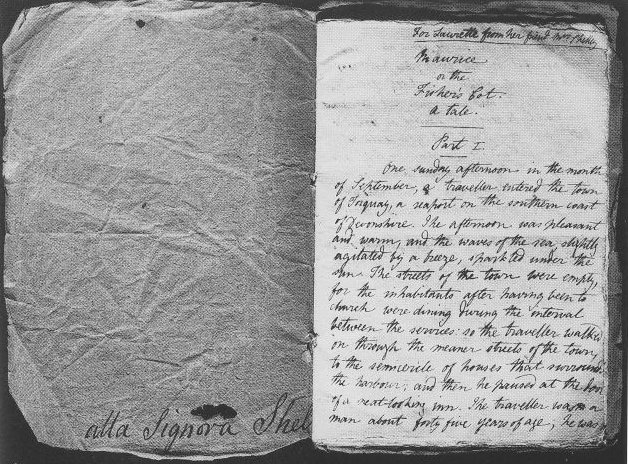 alla Signora Shel
For Laurette from her friend Mrs Shelley
Maurice
or the
Fisher's Cot.
a tale.
Part I
One sunday afternoon in the month
of September, a traveller entered the town
of Torquay, a seaport on the southern coast
of Devonshire. The afternoon was pleasant
and warm, and the waves of the sea, slightly
agitated by a breeze, sparkled under the
sun. The streets of the town were empty,
for the inhabitants after having been to
church were dining during the interval
between the services: so the traveller walked
on through the meaner streets of the town,
to the semicircle of houses that surrounds
the harbour; and then he paused at the door
of a neat-looking inn. The traveller was a
man about forty five years of age; he was